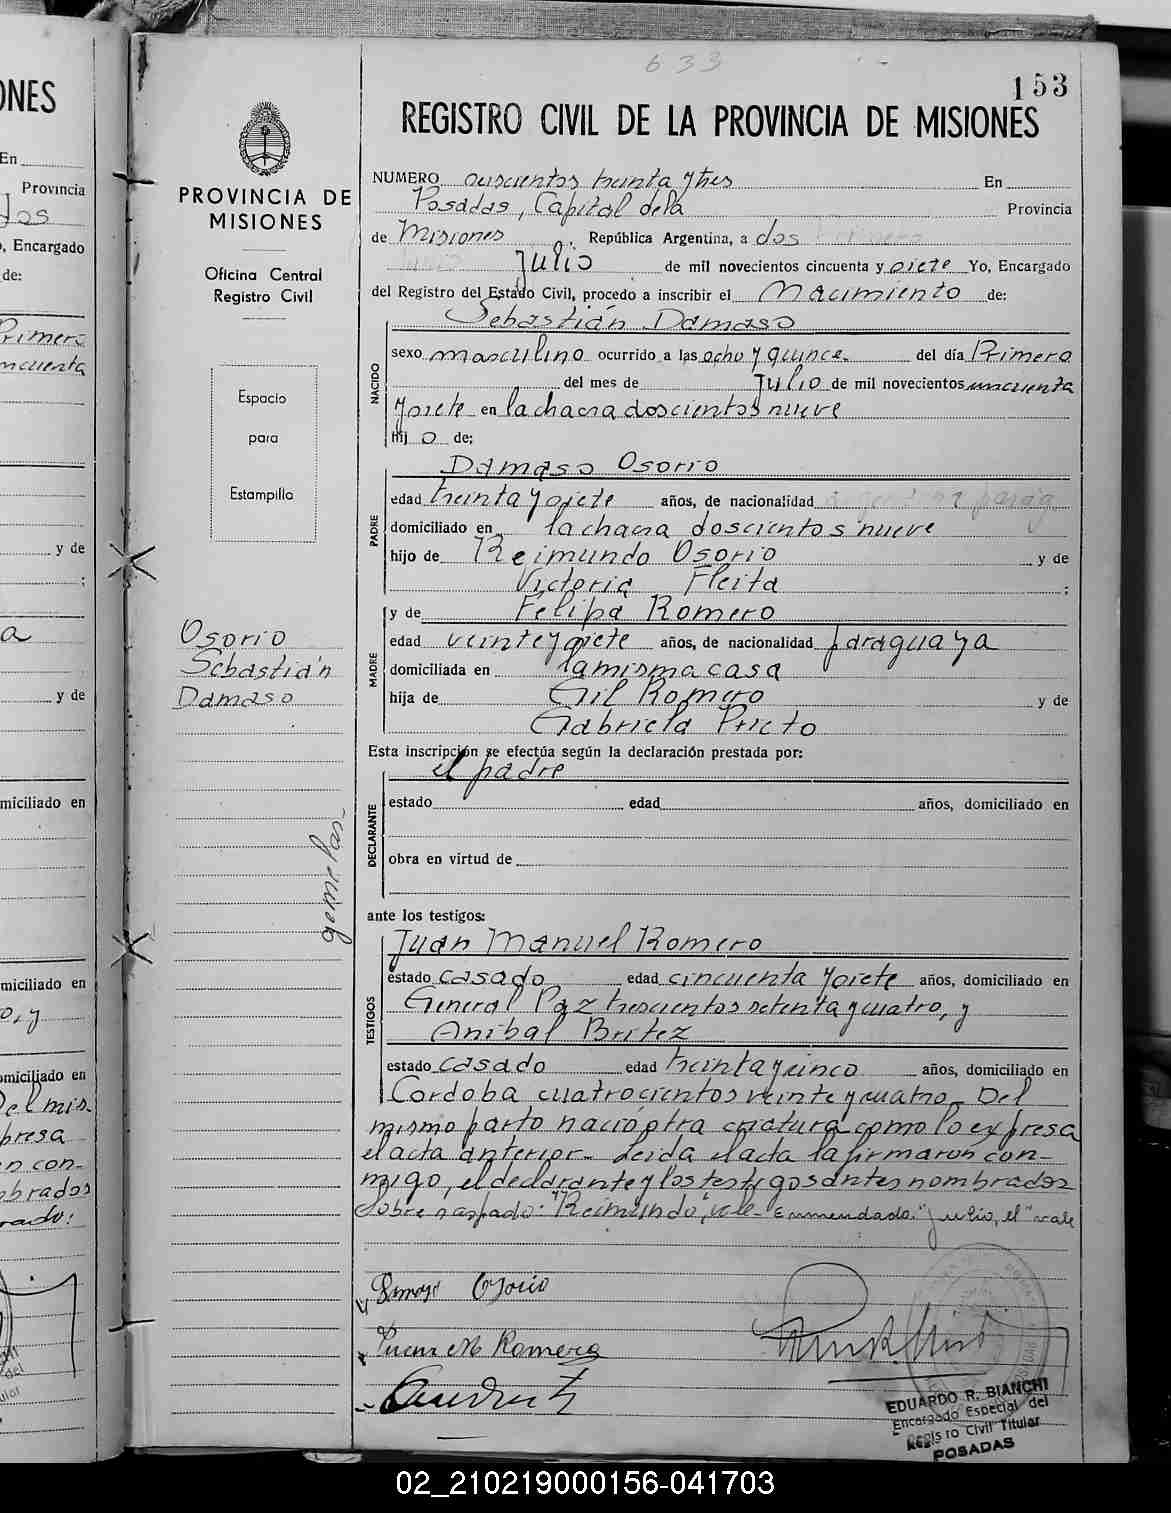 633
153
REGISTRO CIVIL DE LA PROVINCIA DE MISIONES
PROVINCIA DE
MISIONES
Oficina Central
Registro Civil
Espacio
para
Estampilla
Osorio
Sebastián
Damaso
gemelar.
NUMERO seiscientos treinta y tres En
Posadas, Capital de la Provincia
de Misiones, República Argentina, a dos
Julio de mil novecientos cincuenta y siete Yo, Encargado
del Registro del Estado Civil, procedo a inscribir el Nacimiento de:
Sebastián Damaso
NACIDO
sexo masculino ocurrido a las ocho y quince del día Primero
del mes de Julio de mil novecientos cincuenta
y siete en la chacra doscientos nueve
hijo de:
Damaso Osorio
PADRE
edad treinta y siete años, de nacionalidad
domiciliado en la chacra doscientos nueve
hijo de Reimundo Osorio y de
Victoria Fleita ;
y de Felipa Romero
MADRE
edad veinte y siete años, de nacionalidad paraguaya
domiciliada en la misma casa
hija de Gil Romero y de
Gabriela Prieto
Esta inscripción se efectúa según la declaración prestada por:
el padre
DECLARANTE
estado edad años, domiciliado en
obra en virtud de
ante los testigos:
Juan Manuel Romero
TESTIGOS
estado casado edad cincuenta y siete años, domiciliado en
General Paz trescientos setenta y cuatro, y
Anibal Britez
estado casado edad treinta y cinco años, domiciliado en
Cordoba cuatrocientos veinte y cuatro_ Del
mismo parto nació otra criatura como lo expresa
el acta anterior_ Leida el acta la firmaron con-
migo, el declarante y los testigos antes nombrados
Sobre raspado: "Reimundo", vale_ Enmendado: "Julio, el" vale
Damaso Osorio
Juan M Romero
EDUARDO R. BIANCHI
Encargado Especial del
Registro Civil Titular
POSADAS
ONES
En
Provincia
dos
, Encargado
de:
Primero
ncuenta
y de
;
a
y de
miciliado en
miciliado en
o, y
omiciliado en
Del mis-
presa
n con-
mbrados
rado:
02_210219000156-041703